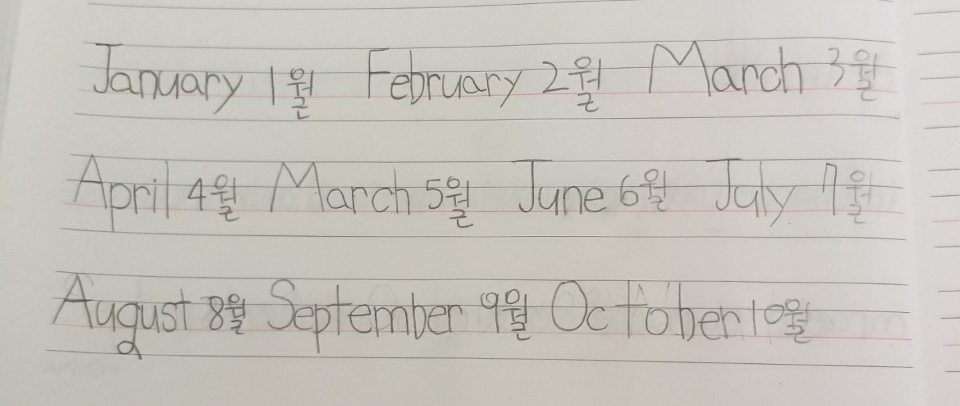 January 1월 February 2월 March 3월
April 4월 March 5월 June 6월 July 7월
August 8월 September 9월 October 10월